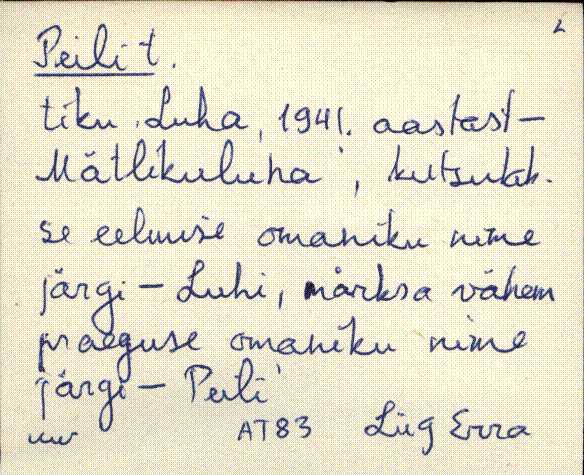 L
Peili t.
tiku Luha, 1941. aastast-
Mätlikuluha, kutsutak-
se eelmise omaniku nime
järgi - Luhi, märksa vähem
praeguse omaniku nime
järgi - Peili
AT83 Lüg Erra